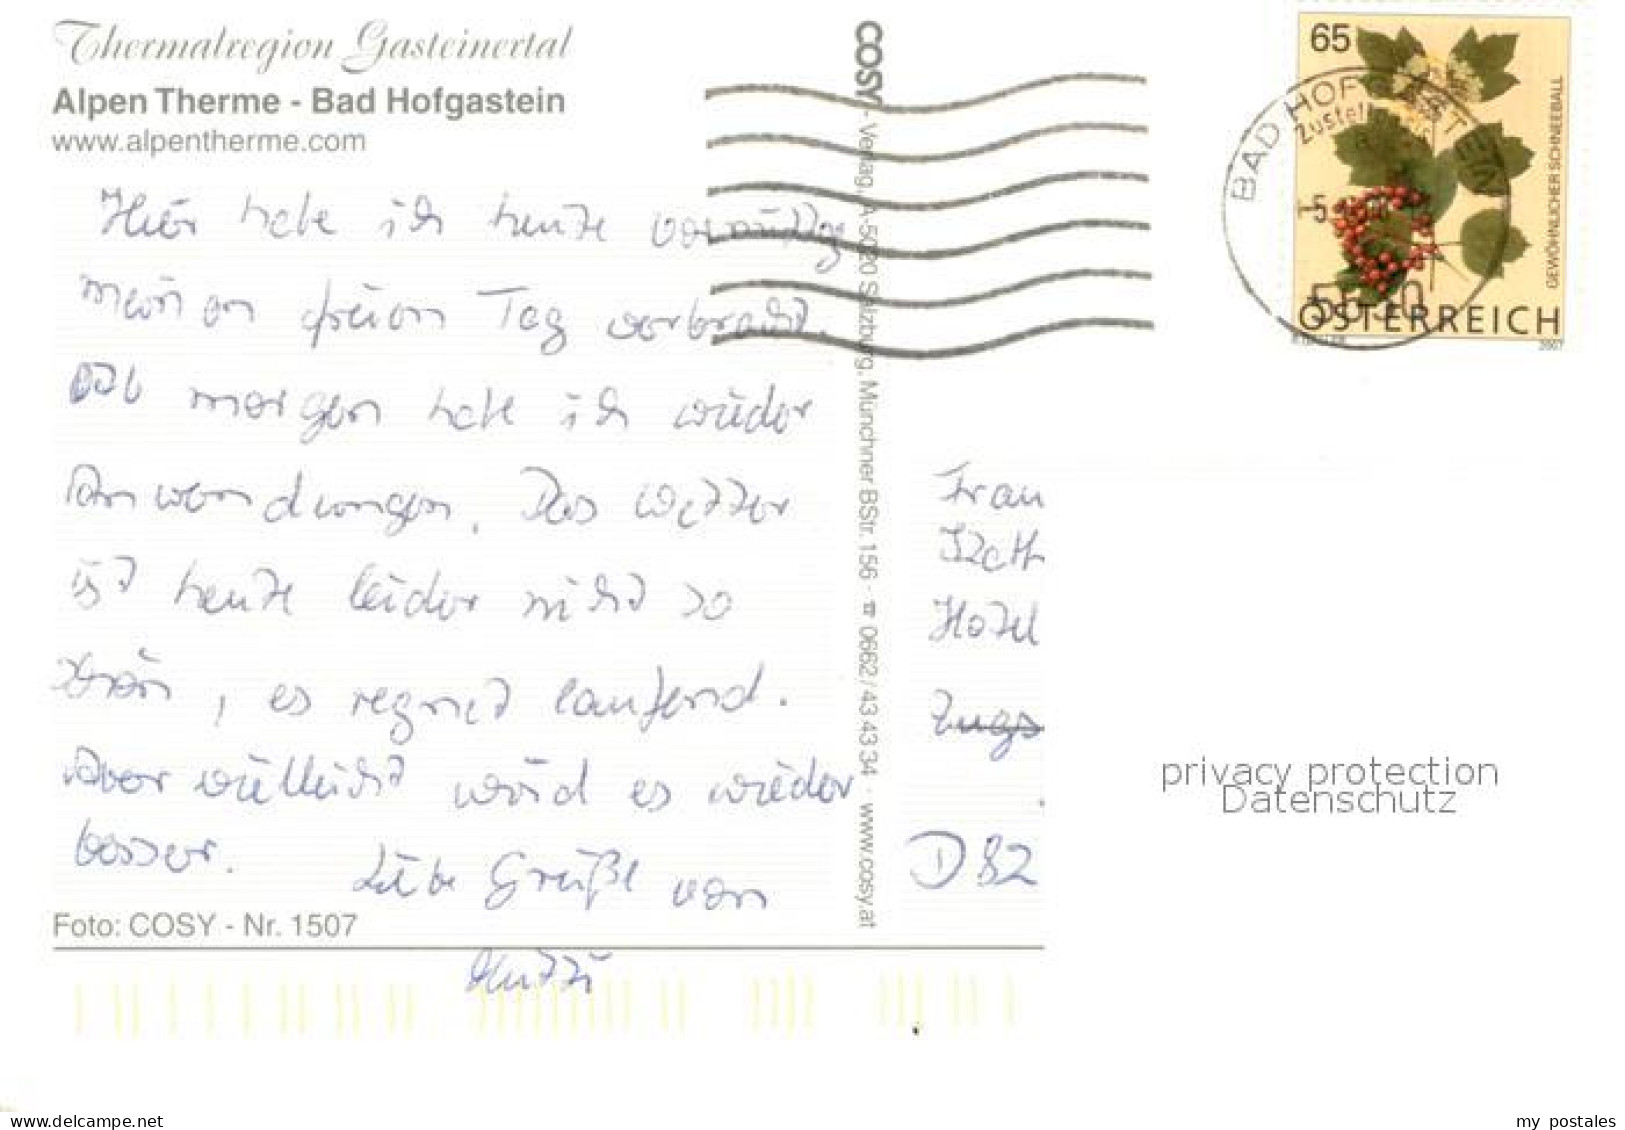 Thermalregion Gasteinertal
Alpen Therme - Bad Hofgastein
www.alpentherme.com
Hier habe ich heute vormittag
meinen freien Tag verbracht.
Ab morgen habe ich wieder
Anwendungen. Das Wetter
ist heute leider nicht so
schön, es regnet laufend.
Aber vielleicht wird es wieder
besser. Liebe Grüße von
Mutti
Foto: COSY - Nr. 1507
COSY - Verlag, A-5020 Salzburg, Münchner BStr. 156 · ☎ 0662 / 43 43 34 · www.cosy.at
65
GEWÖHNLICHER SCHNEEBALL
ÖSTERREICH
2007
BAD HOFGASTEIN
5630
Frau
Kath
Hotel
Zugs
D 82
privacy protection
Datenschutz
delcampe.net
my_postales